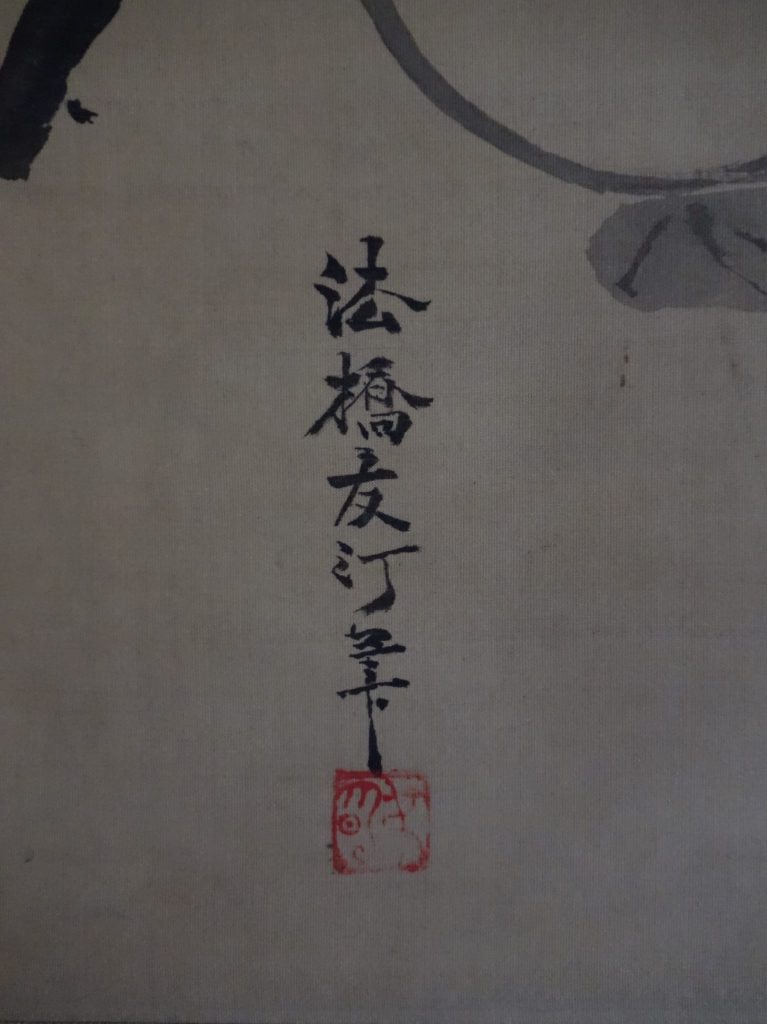 法橋友汀筆